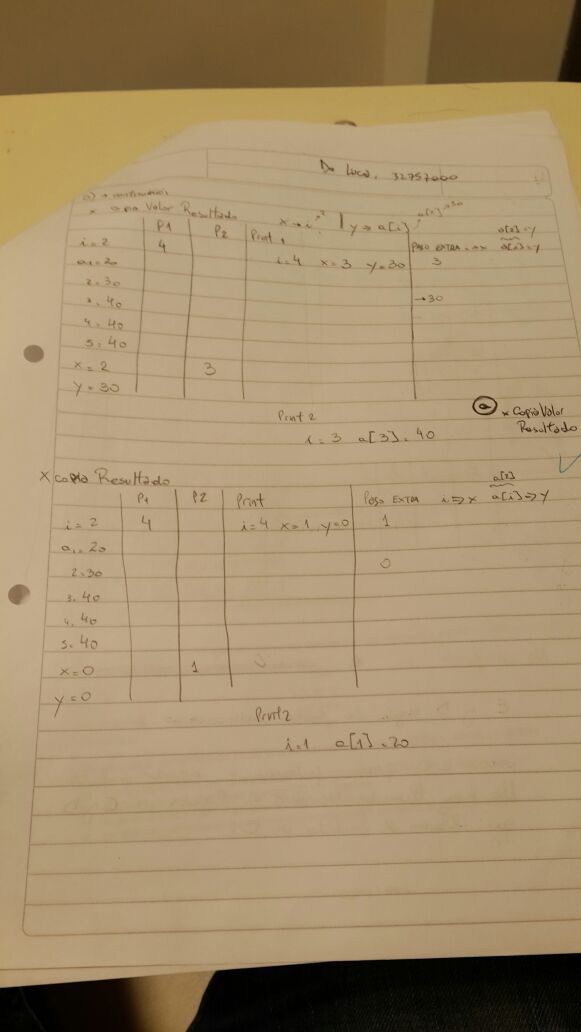 De Luca, 32757000
a) →
x Copia Valor Resultado x → i 2 | y → a[i] a[2] → 30
P1 P2 Print 1 Paso EXTRA i → x a[2] = y a[i] = y
i = 2 4 i=4 x=3 y=30 3
a1 = 20
2. 30 → 30
3. 40
4. 40
5. 40
x = 2 3
y = 30
Print 2
i = 3 a[3] = 40
a x Copia Valor Resultado
X copia Resultado
P1 P2 Print Paso EXTRA i => x a[2] a[i] => y
i = 2 4 i=4 x=1 y=0 1
a1. 20
2. 30 0
3. 40
4. 40
5. 40
x = 0 1
y = 0
Print 2
i=1 a[1] = 20